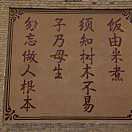 饭由米煮
须知树木不易
子乃母生
勿忘做人根本